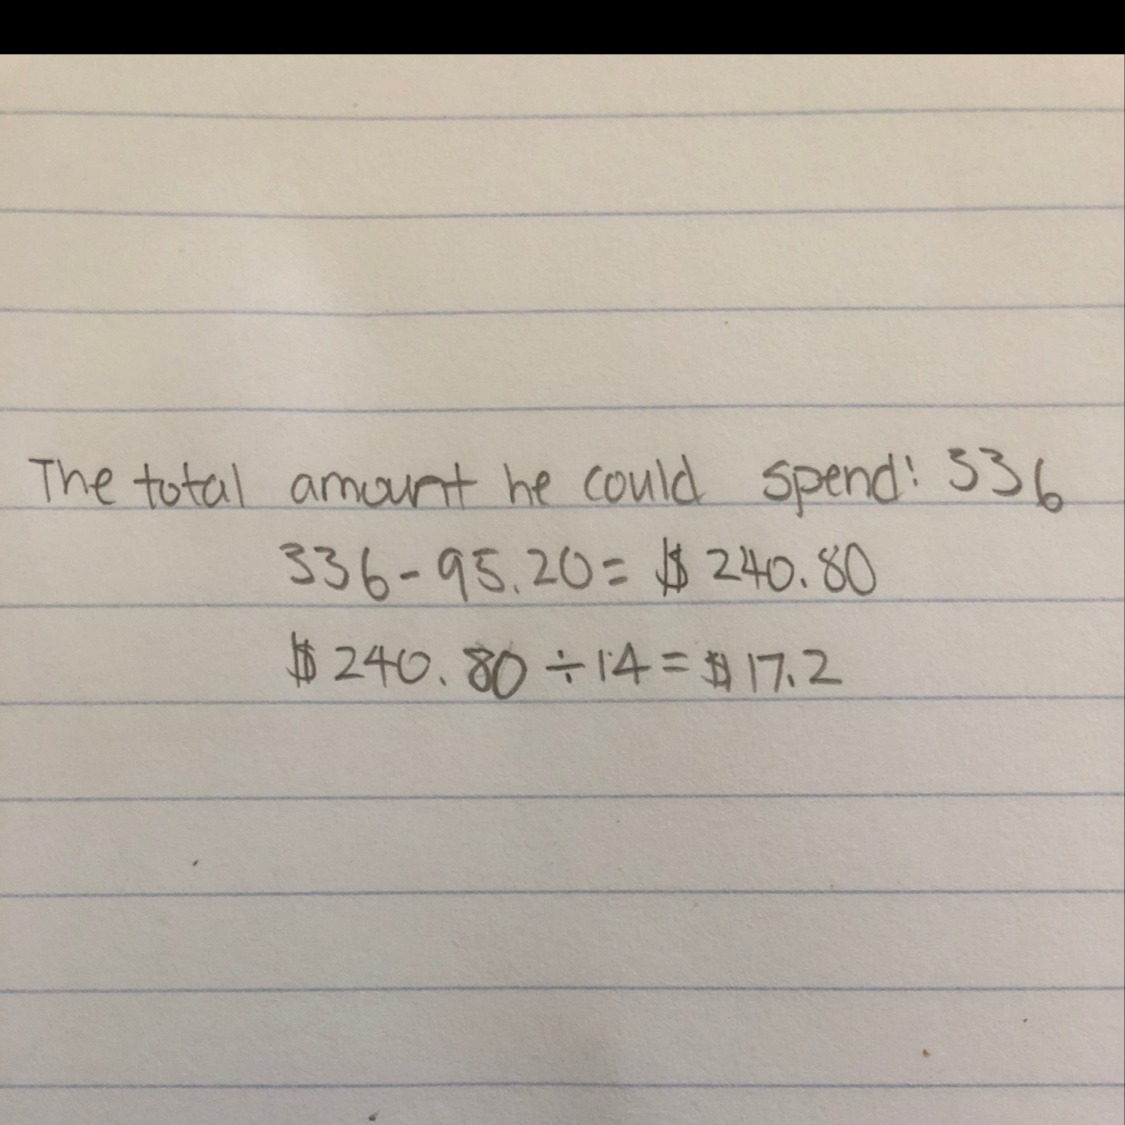 The total amount he could spend: 336
336 - 95.20 = $ 240.80
$ 240.80 ÷ 14 = $ 17.2